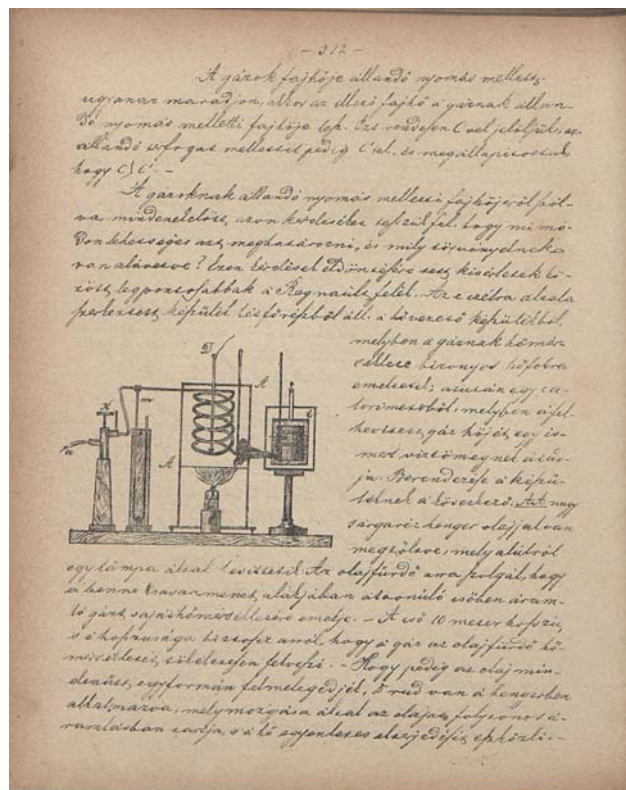 - 312 -
A gázok fajhője állandó nyomás mellett
ugyanaz maradjon, akkor az illető fajhő a gáznak állan-
dó nyomás melletti fajhője lesz. Ezt rendesen C vel jelöljük, az
állandó térfogat mellettit pedig C' tel, és megállapítottuk
hogy C > C'. -
A gázoknak állandó nyomás melletti fajhőjéről szól-
va, mindenekelőtt azon kérdésünk tehető fel, hogy mi mó-
don lehetséges azt meghatározni, és mily törvényeknek
van alávetve? Ezen kérdések eldöntésére tett kísérletek kö-
zött legpontosabbak a Regnault felél. Az e czélra általa
szerkesztett készülék két főrészből áll: a hővezető készülékből,
melyben a gáznak hőmér-
séklete bizonyos hőfokra
emeltetik; azután egy ca-
lorimeterből, melyben a fel-
hevített gáz hőjét egy is-
mert víztömegnek átad-
ja. Berendezése a készü-
léknek a következő: AA nagy
sárgaréz henger olajjal van
megtöltve, mely alulról
egy lámpa által hevíttetik. Az olajfürdő arra szolgál, hogy
a benne csavarmenet alakjában átvonuló csőben áram-
ló gázt saját hőmérsékletére emelje. - A cső 10 meter hosszú,
s e hosszúsága biztosít arról, hogy a gáz az olajfürdő hő-
mérsékletét tökéletesen felveszi. - Hogy pedig az olaj min-
denütt egyformán felmelegedjék, D rúd van a hengerben
alkalmazva, mely mozgása által az olajat folytonos á-
ramlásban tartja, s a hő egyenletes elterjedését eszközli. -
D
A
A
m